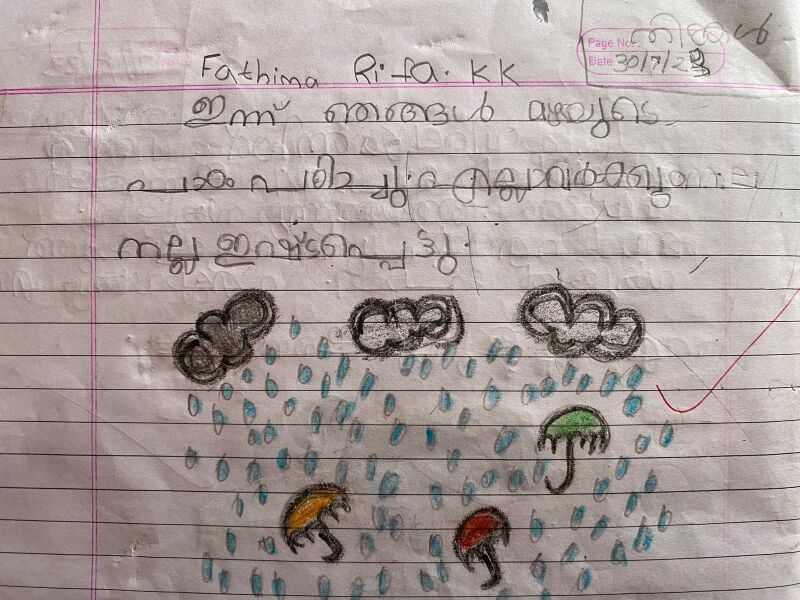 തിങ്കൾ
Page No:
Date 30/7/28
Fathima Rifa. K K
ഇന്ന് ഞങ്ങൾ മഴയുടെ
പാഠം പഠിച്ചു. എല്ലാവർക്കും
നല്ല ഇഷ്ടപ്പെട്ടു.